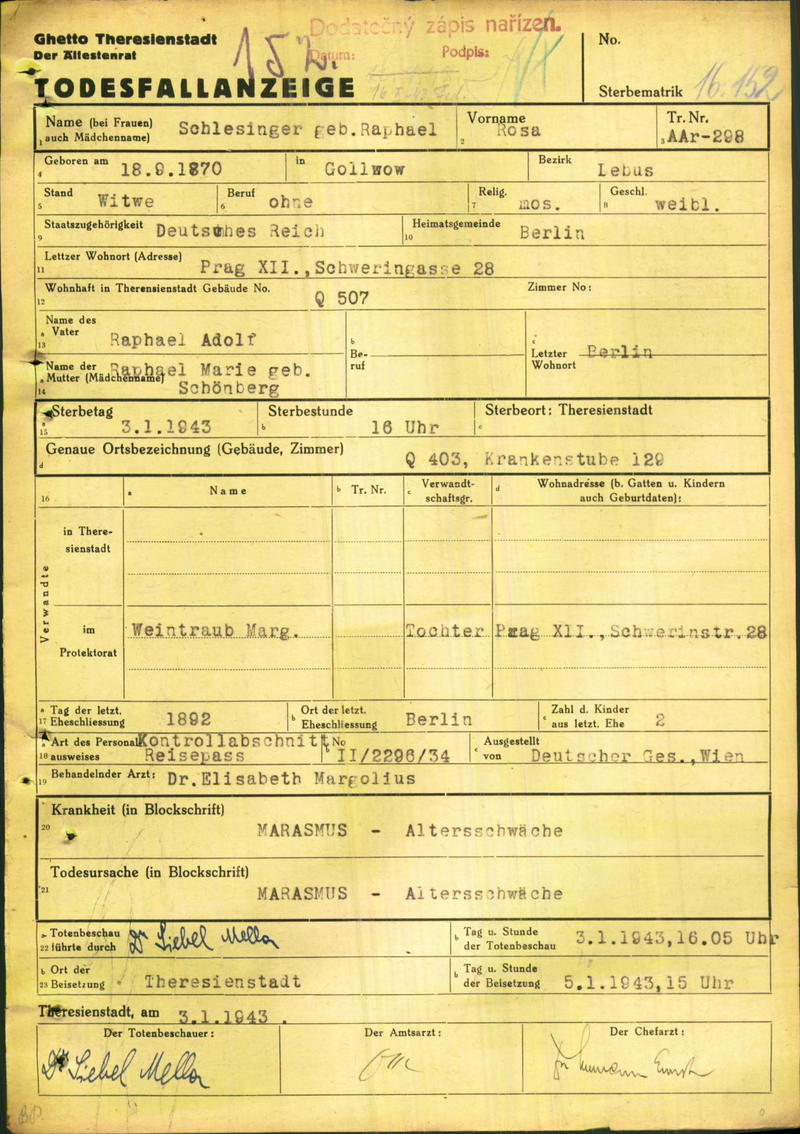 Dodatečný zápis nařízen.
Datum: Podpis:
Ghetto Theresienstadt
Der Ältestenrat
TODESFALLANZEIGE
No.
Sterbematrik 16.152
1 Name (bei Frauen) auch Mädchenname) Schlesinger geb.Raphael 2 Vorname Rosa 3 Tr. Nr. AAr-298
4 Geboren am 18.9.1870 in Gollwow Bezirk Lebus
5 Stand Witwe 6 Beruf ohne 7 Relig. mos. 8 Geschl. weibl.
9 Staatszugehörigkeit Deutsches Reich 10 Heimatsgemeinde Berlin
11 Lettzer Wohnort (Adresse) Prag XII.,Schweringasse 28
12 Wohnhaft in Therensienstadt Gebäude No. Q 507 Zimmer No:
13 a Name des Vater Raphael Adolf b Be-ruf c Letzter Wohnort Berlin
14 a Name der Mutter (Mädchenname) Raphael Marie geb.
Schönberg
15 a Sterbetag 3.1.1943 b Sterbestunde 16 Uhr c Sterbeort: Theresienstadt
d Genaue Ortsbezeichnung (Gebäude, Zimmer) Q 403, Krankenstube 129
16 a Name b Tr. Nr. c Verwandt-schaftsgr. d Wohnadresse (b. Gatten u. Kindern auch Geburtdaten):
Verwandte
in There-
sienstadt
im Protektorat Weintraub Marg. Tochter Prag XII.,Schwerinstr.28
17 a Tag der letzt. Eheschliessung 1892 b Ort der letzt. Eheschliessung Berlin c Zahl d. Kinder aus letzt. Ehe 2
18 a Art des Personal-ausweises Kontrollabschnitt Reisepass b No II/2296/34 c Ausgestellt von Deutscher Ges.,Wien
19 Behandelnder Arzt: Dr.Elisabeth Margolius
Krankheit (in Blockschrift)
20 MARASMUS - Altersschwäche
Todesursache (in Blockschrift)
21 MARASMUS - Altersschwäche
22 a Totenbeschau führte durch Dr Siebel Mella b Tag u. Stunde der Totenbeschau 3.1.1943,16.05 Uhr
23 b Ort der Beisetzung Theresienstadt b Tag u. Stunde der Beisetzung 5.1.1943,15 Uhr
Theresienstadt, am 3.1.1943 .
Der Totenbeschauer: Der Amtsarzt: Der Chefarzt:
Dr Siebel Mella